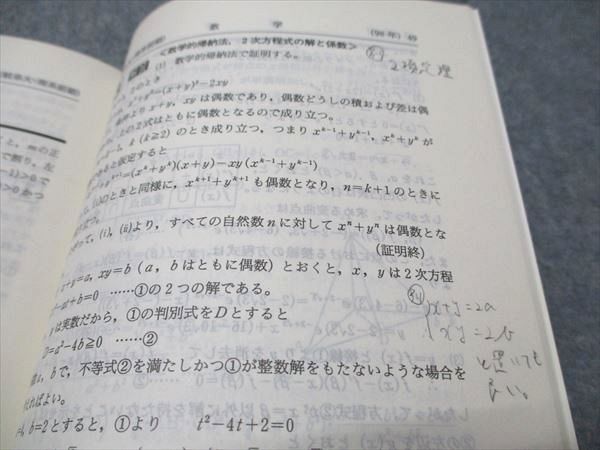 数 学 (98年) 49
<数学的帰納法, 2次方程式の解と係数>
(1) 数学的帰納法で証明する。
別 2項定理
のとき
=(x+y)²−2xy
より x+y, xy は偶数であり, 偶数どうしの積および差は偶
上の2式はともに偶数となるので成り立つ。
k (k≧2) のとき成り立つ, つまり xᵏ⁻¹+yᵏ⁻¹, xᵏ+yᵏ が
あると仮定すると
yᵏ⁺¹=(xᵏ+yᵏ)(x+y)−xy(xᵏ⁻¹+yᵏ⁻¹)
のときと同様に, xᵏ⁺¹+yᵏ⁺¹ も偶数となり, n=k+1 のときに
つ。
って, (i), (ii)より, すべての自然数 n に対して xⁿ+yⁿ は偶数とな
(証明終)
x+y=a, xy=b (a, b はともに偶数) とおくと, x, y は2次方程
−at+b=0 ……①の2つの解である。
は実数だから, ①の判別式を D とすると
=a²−4b≧0 ……②
b で, 不等式②を満たしかつ①が整数解をもたないような場合を
ればよい。
4, b=2 とすると, ①より t²−4t+2=0
別 x+y=2a
xy=2b
と置いても
良い。
と, m の正
で割り, 左
−1)>0で
>0 かつ